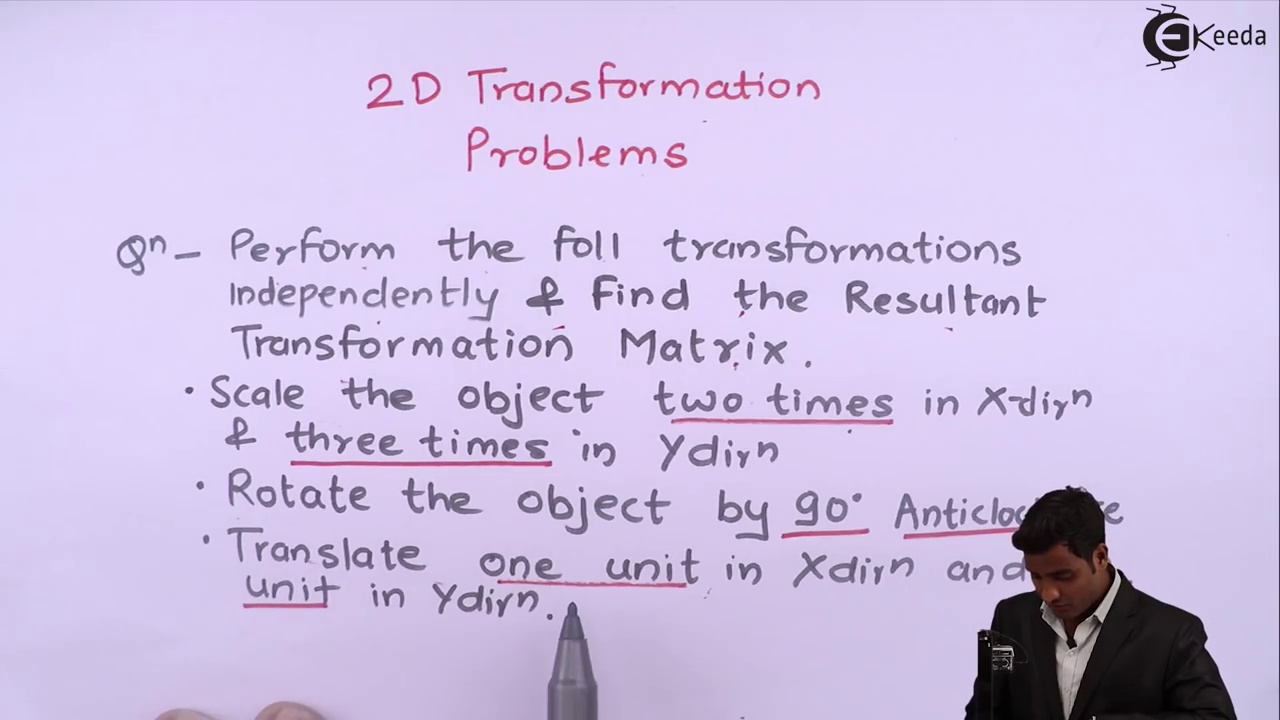 EKeeda
2D Transformation
Problems
Qn - Perform the foll transformations
independently & Find the Resultant
Transformation Matrix.
• Scale the object two times in X-dirn
& three times in Ydirn
• Rotate the object by 90°
• Translate one unit in Xdirn and
unit in Ydirn.